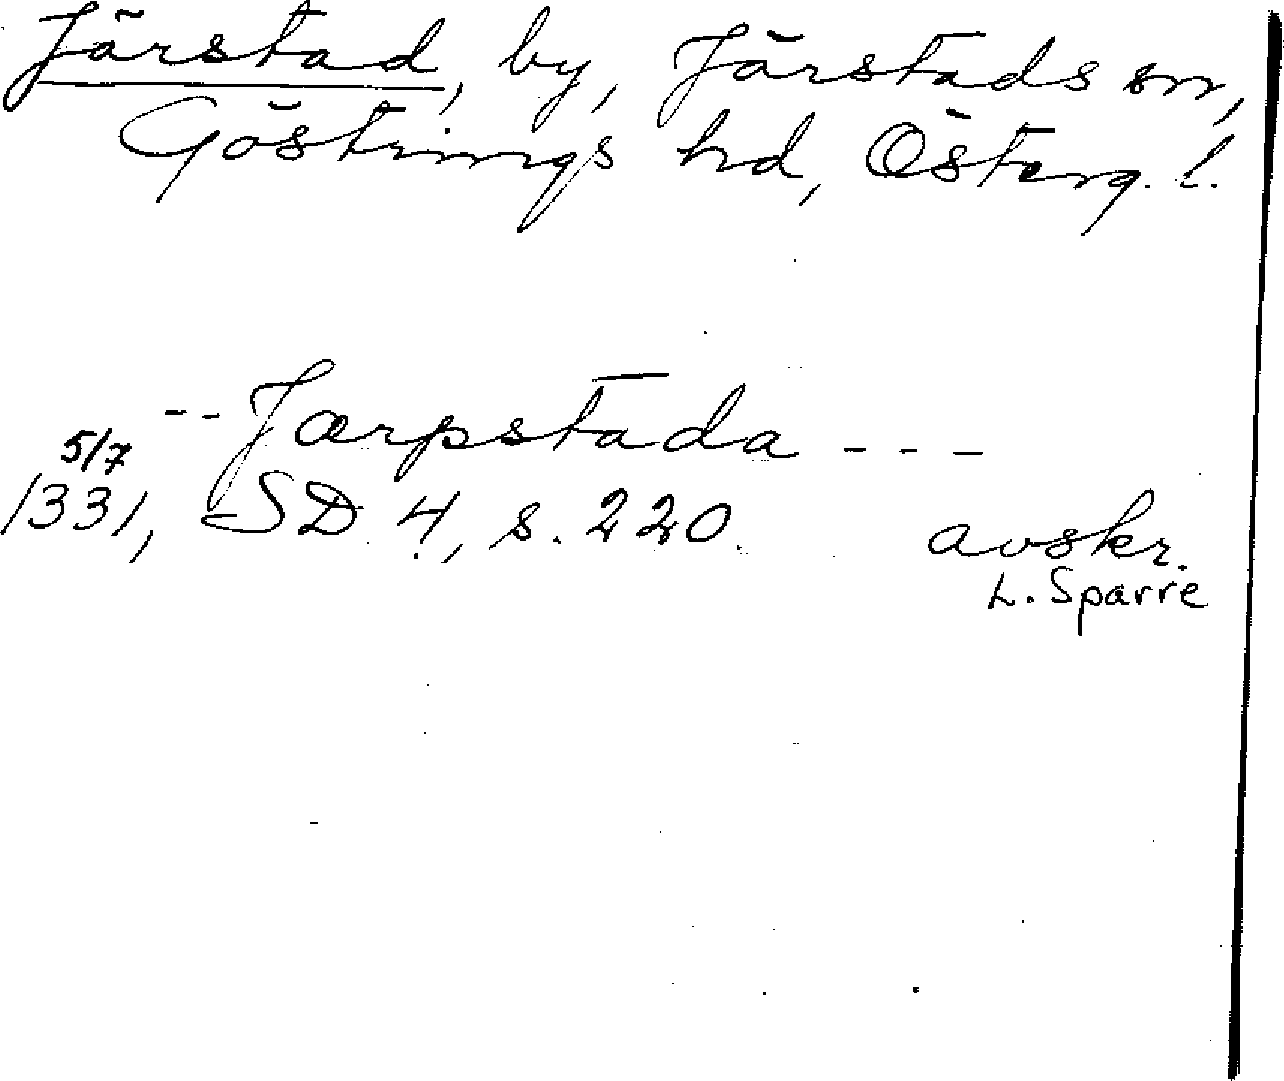 Järstad, by, Järstads sn,
Göstrings hd, Österg. l.
-- Jærpstada ---
5/7
1331, SD 4, s. 220. avskr.
L. Sparre